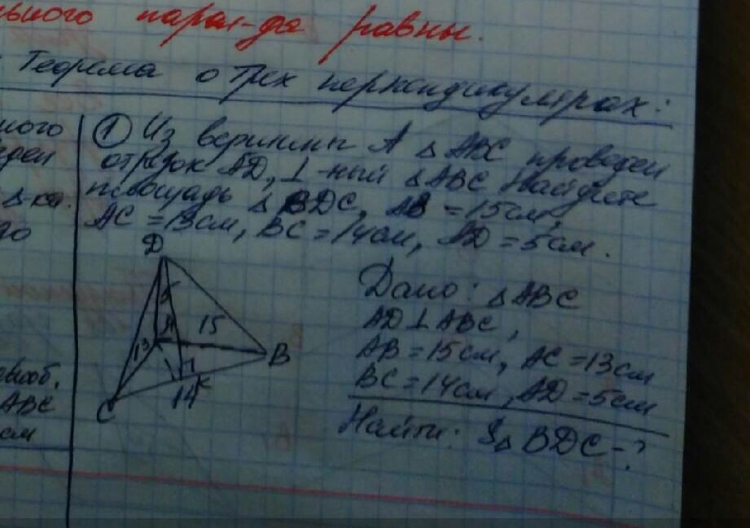 ьного парал-да равны.
Теорема о трех перпендикулярах:
ного
① Из вершины А △ АВС проведен
отрезок AD, ⊥-ный △ АВС. Найдите
площадь △ BDC, AB = 15 см,
AC = 13 см, BC = 14 см, AD = 5 см.
го
D
5
13
A
15
B
K
14
C
Дано: △ ABC
AD ⊥ ABC,
AB = 15 см, AC = 13 см
BC = 14 см, AD = 5 см
Найти: S△ BDC - ?
АВС
см